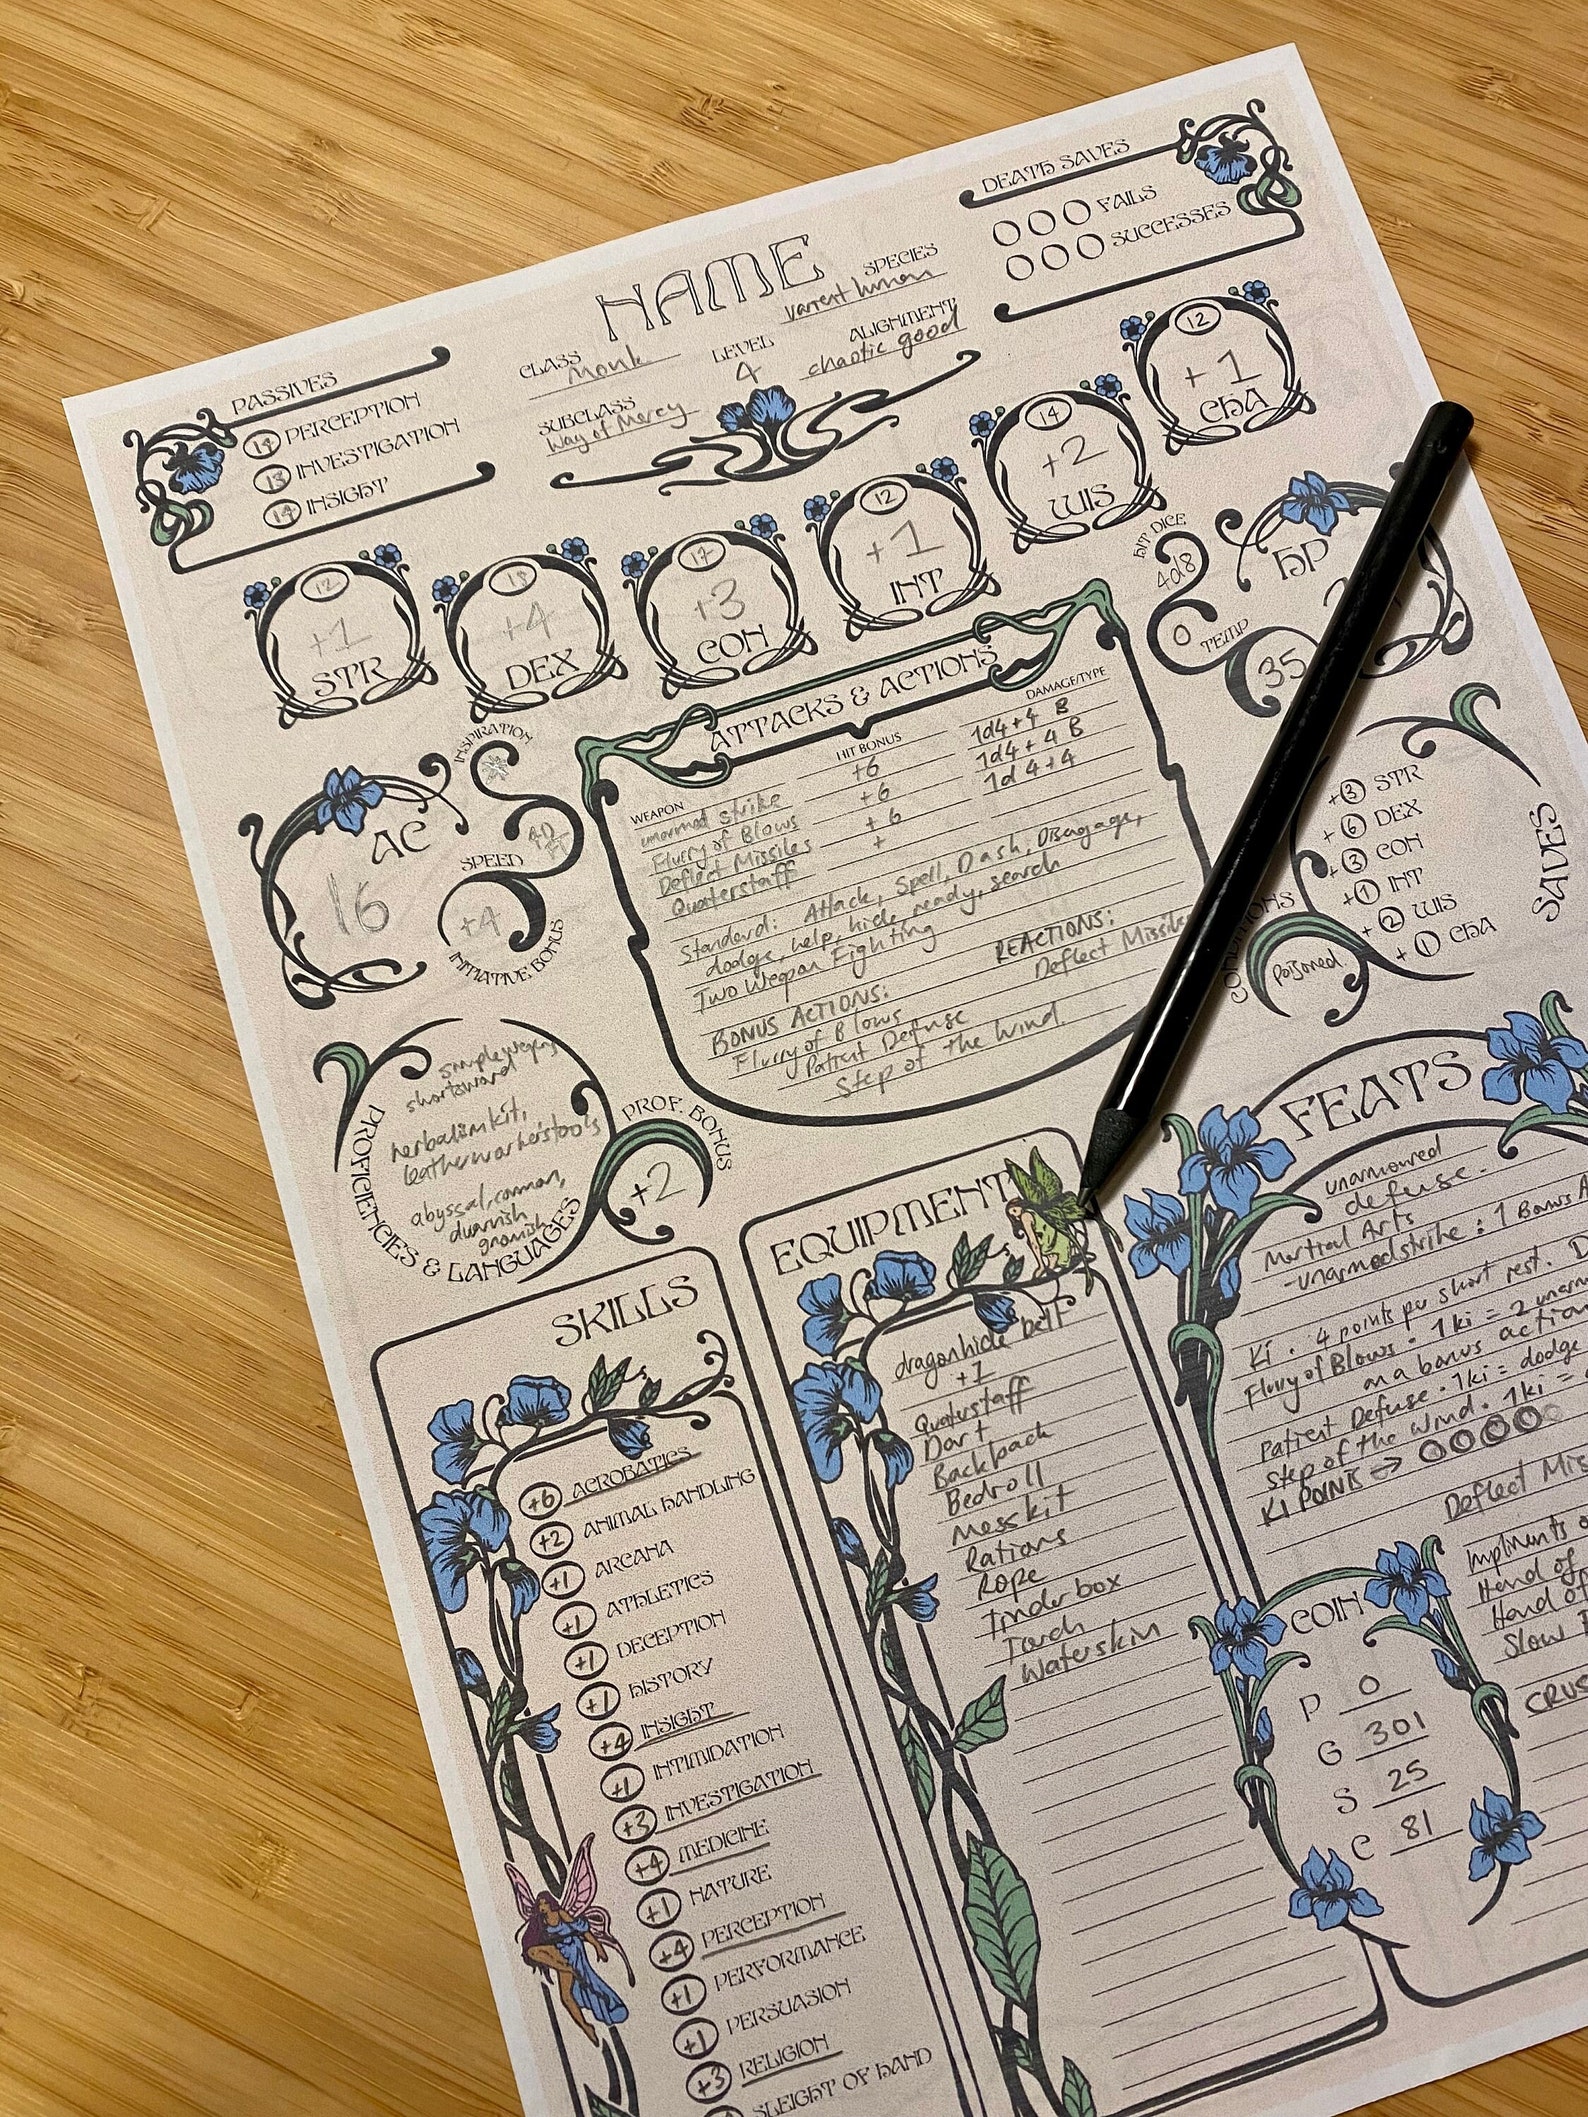 DEATH SAVES
FAILS
SUCCESSES
NAME
SPECIES
varrent human
CLASS
Monk
LEVEL
4
ALIGNMENT
chaotic good
SUBCLASS
Way of Mercy
PASSIVES
14 PERCEPTION
13 INVESTIGATION
14 INSIGHT
12
+1
STR
18
+4
DEX
17
+3
CON
12
+1
INT
14
+2
WIS
12
+1
CHA
HIT DICE
4d8
HP
0
TEMP
35
INSPIRATION
AC
16
SPEED
40
FT
+4
INITIATIVE BONUS
ATTACKS & ACTIONS
WEAPON HIT BONUS DAMAGE/TYPE
unarmed strike +6 1d4+4 B
Flurry of Blows +6 1d4+4 B
Deflect Missiles +6 1d4+4
Quaterstaff +
Standard: Attack, Spell, Dash, Disengage,
dodge, help, hide, ready, search
Two Weapon Fighting
BONUS ACTIONS:
Flurry of Blows
Patient Defense
Step of the Wind.
REACTIONS:
Deflect Missiles
+3 STR
+6 DEX
+3 CON
+1 INT
+2 WIS
+1 CHA
SAVES
CONDITIONS
Poisoned
simple weapons
shortsword
herbalism kit,
leatherworker's tools
abyssal, common,
dwarvish
gnomish
PROFICIENCIES & LANGUAGES
PROF. BONUS
+2
SKILLS
+6 ACROBATICS
+2 ANIMAL HANDLING
+1 ARCANA
+1 ATHLETICS
+1 DECEPTION
+1 HISTORY
+4 INSIGHT
+1 INTIMIDATION
+3 INVESTIGATION
+4 MEDICINE
+1 NATURE
+4 PERCEPTION
+1 PERFORMANCE
+1 PERSUASION
+3 RELIGION
SLEIGHT OF HAND
EQUIPMENT
dragonhide belt
+1
Quaterstaff
Dart
Backback
Bedroll
Messkit
Rations
Rope
Tinderbox
Torch
Waterskin
FEATS
unarmoured
defense.
Martial Arts
- unarmed strike: 1 Bonus A
Ki. 4 points per short rest. D
Flurry of Blows. 1 ki = 2 unarm
on a bonus action
Patient Defuse. 1 ki = dodge
Step of the wind. 1 ki =
KI POINTS →
Deflect Miss
Implments o
Hand of
Hand of
Slow
CRUS
COIN
P 0
G 301
S 25
C 81